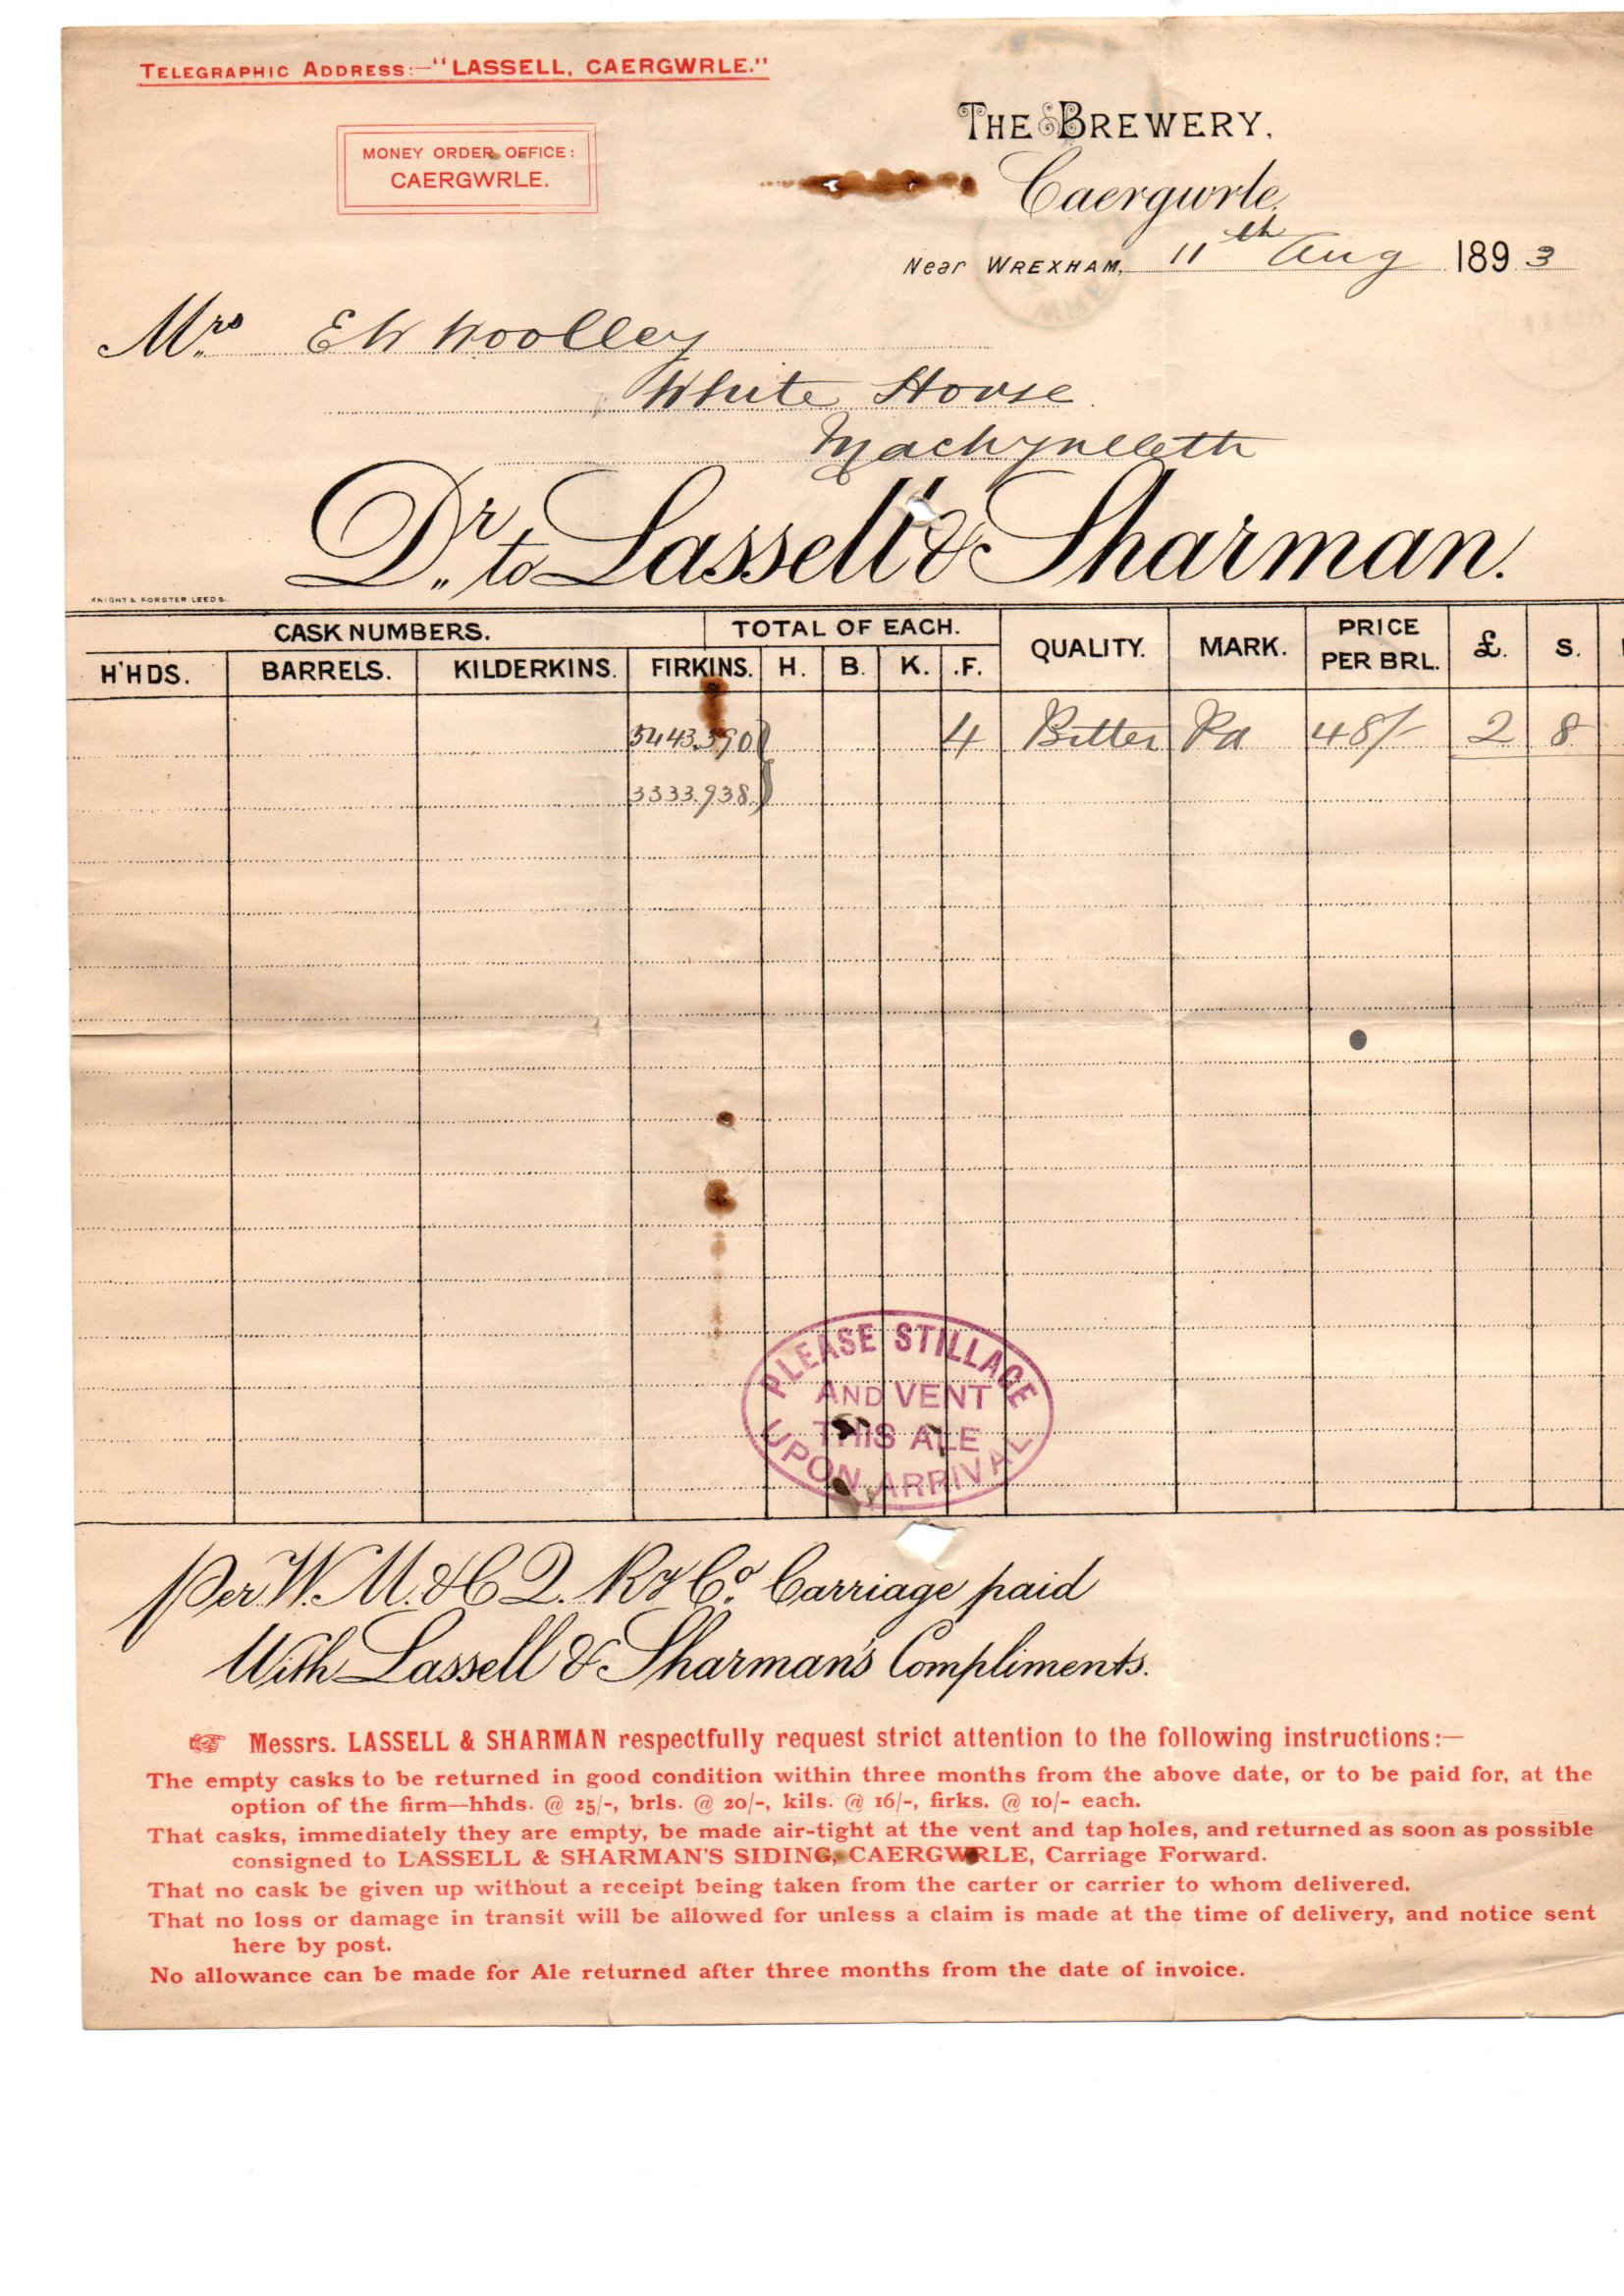 TELEGRAPHIC ADDRESS:—"LASSELL, CAERGWRLE."
MONEY ORDER OFFICE:
CAERGWRLE.
THE BREWERY,
Caergwrle,
Near WREXHAM, 11th Aug 1893
Mrs. E W Woolley
White House
Machynlleth
Dr. to Lassell & Sharman.
KNIGHT & FORSTER LEEDS.
CASK NUMBERS. TOTAL OF EACH. QUALITY. MARK. PRICE PER BRL. £. S.
H'HDS. BARRELS. KILDERKINS. FIRKINS. H. B. K. F.
5443.390 4 Bitter Pa 48/- 2 8
3333.938
PLEASE STILLAGE
AND VENT
THIS ALE
UPON ARRIVAL
Per W. M. & C Q. Ry Co. Carriage paid
With Lassell & Sharman's Compliments.
☞ Messrs. LASSELL & SHARMAN respectfully request strict attention to the following instructions:—
The empty casks to be returned in good condition within three months from the above date, or to be paid for, at the
option of the firm—hhds. @ 25/-, brls. @ 20/-, kils. @ 16/-, firks. @ 10/- each.
That casks, immediately they are empty, be made air-tight at the vent and tap holes, and returned as soon as possible
consigned to LASSELL & SHARMAN'S SIDING, CAERGWRLE, Carriage Forward.
That no cask be given up without a receipt being taken from the carter or carrier to whom delivered.
That no loss or damage in transit will be allowed for unless a claim is made at the time of delivery, and notice sent
here by post.
No allowance can be made for Ale returned after three months from the date of invoice.